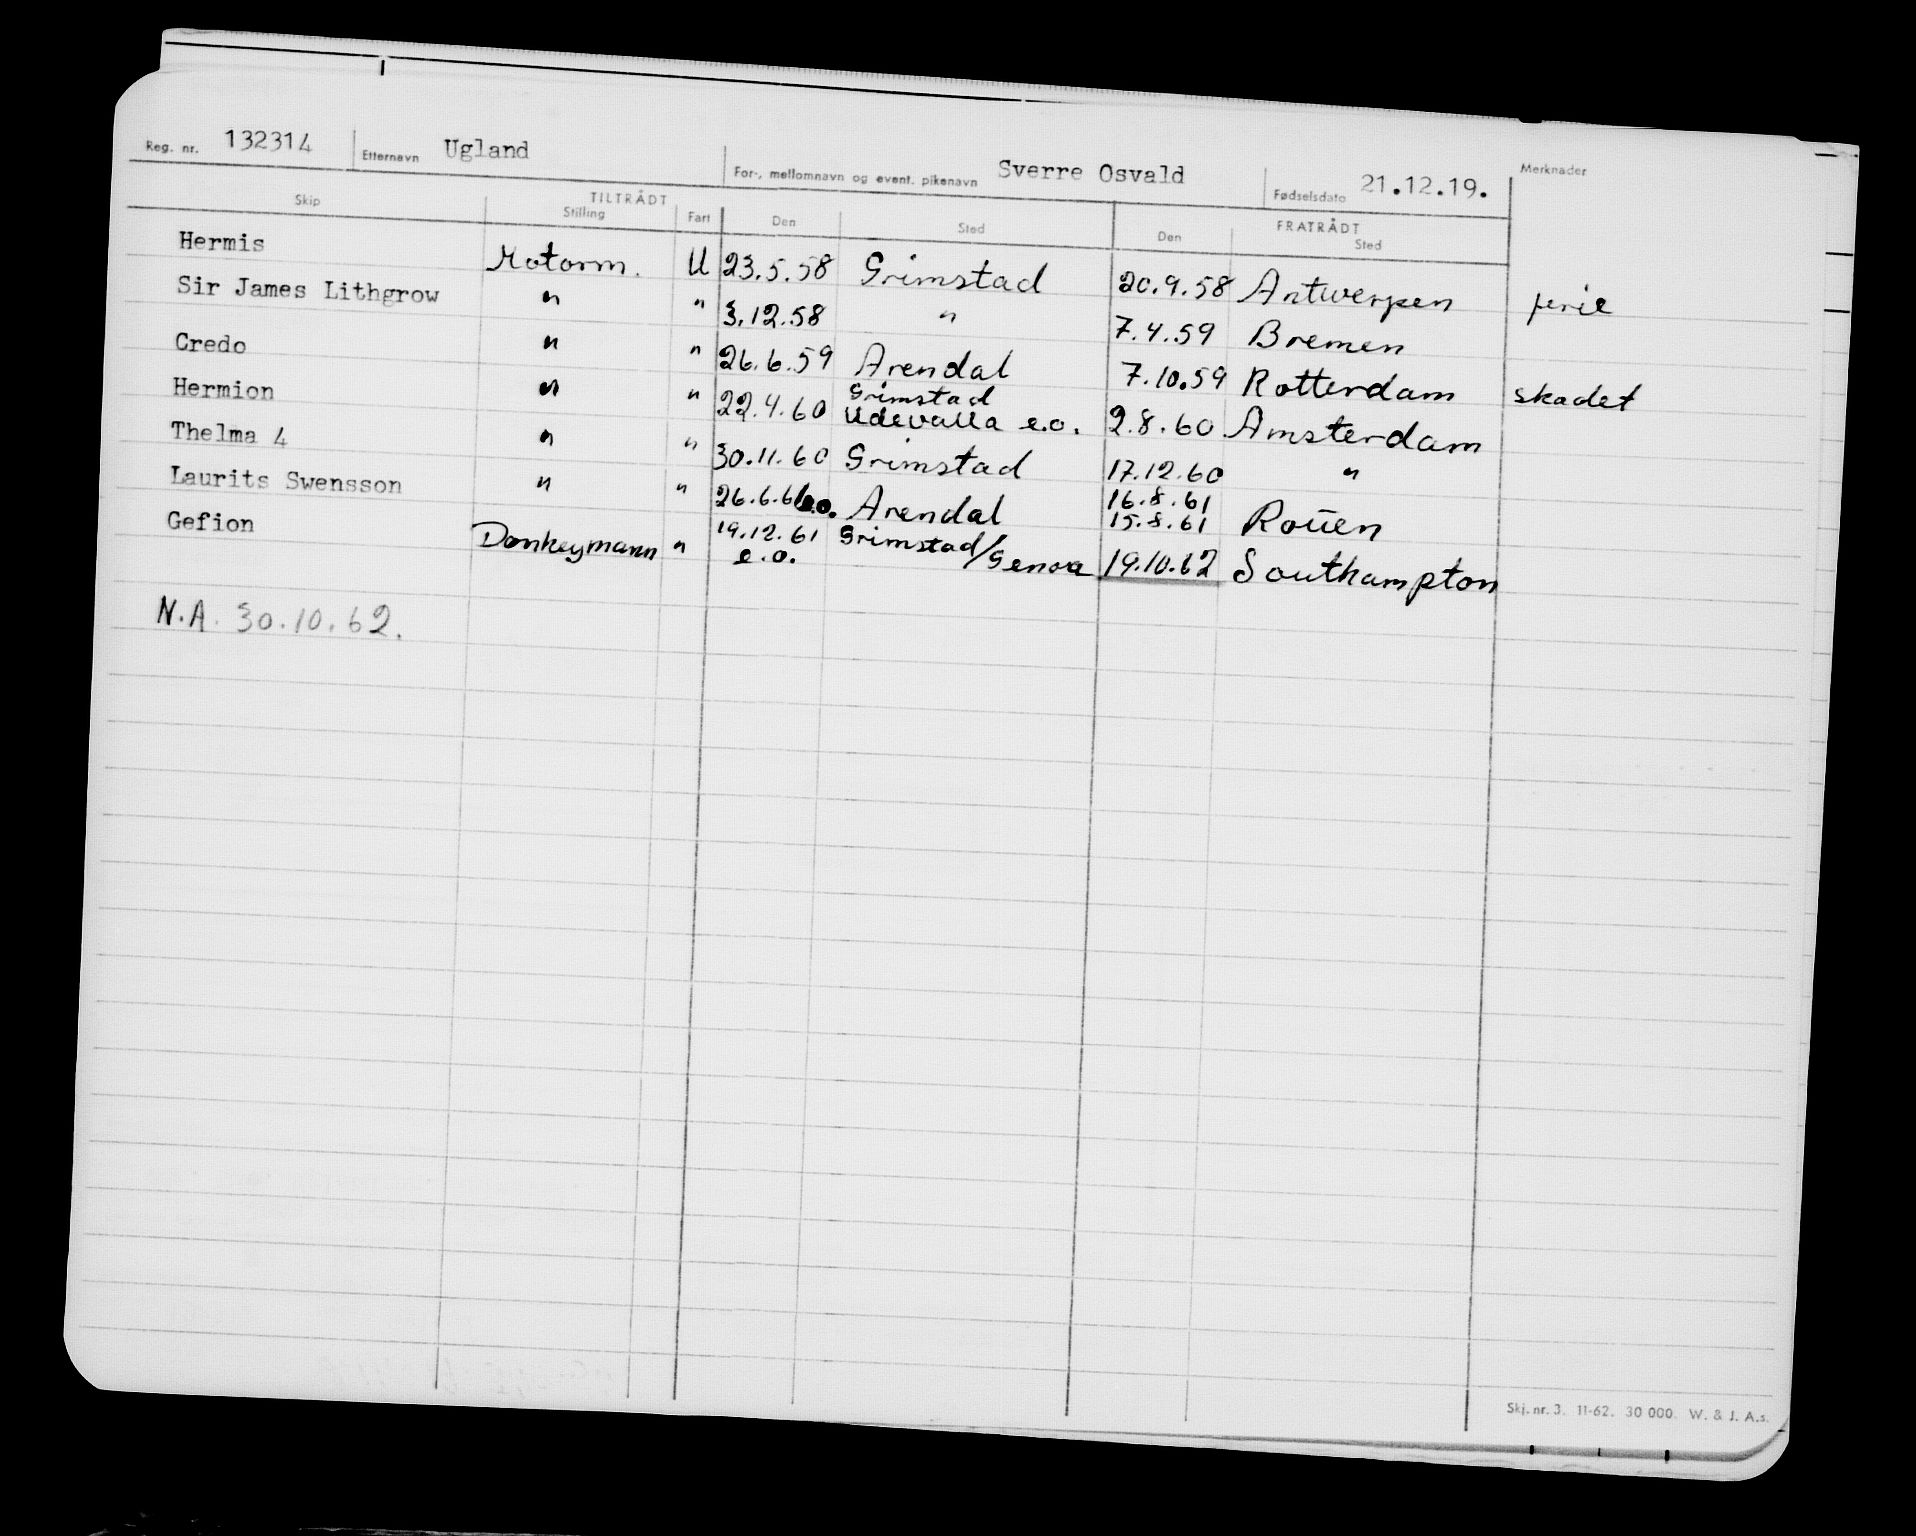 Reg. nr. 132314 Etternavn Ugland For-, mellomnavn og event. pikenavn Sverre Osvald Fødselsdato 21.12.19. Merknader
TILTRÅDT FRATRÅDT
Skip Stilling Fart Den Sted Den Sted
Hermis Motorm. U 23.5.58 Grimstad 20.9.58 Antwerpen ferie
Sir James Lithgrow " " 3.12.58 " 7.4.59 Bremen
Credo " " 26.6.59 Arendal 7.10.59 Rotterdam skadet
Hermion " " 22.4.60 Grimstad Udevalla e.o. 2.8.60 Amsterdam
Thelma 4 " " 30.11.60 Grimstad 17.12.60 "
Laurits Swensson " " 26.6.61 e.o. Arendal 16.8.61 15.8.61 Rouen
Gefion Donkeymann " 19.12.61 e.o. Grimstad/Genoa 19.10.62 Southampton
N.A. 30.10.62.
Skj. nr. 3. 11-62. 30 000. W. & J. A.s.